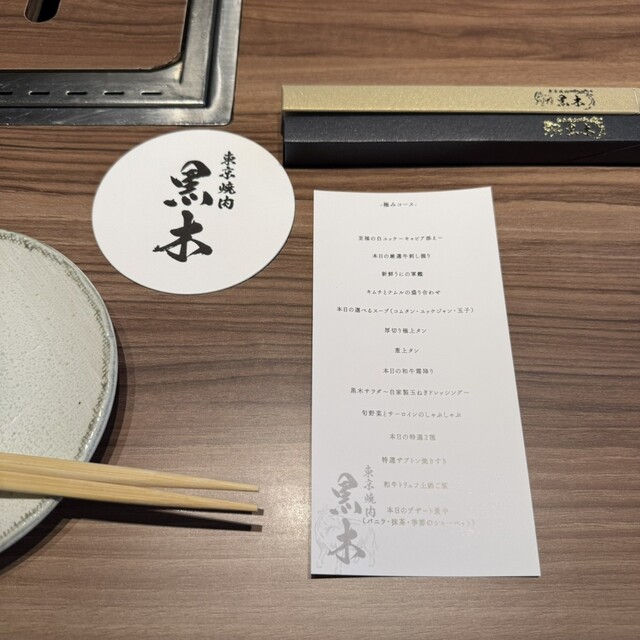 東京焼肉
黒木
黒木
黒木
-極みコース-
至福の白ユッケ～キャビア添え～
本日の厳選牛刺し握り
新鮮うにの軍艦
キムチとナムルの盛り合わせ
本日の選べるスープ(コムタン・ユッケジャン・玉子)
厚切り極上タン
葱上タン
本日の和牛霜降り
黒木サラダ～自家製玉ねぎドレッシング～
旬野菜とサーロインのしゃぶしゃぶ
本日の特選2種
特選ザブトン焼きすき
和牛トリュフ土鍋ご飯
本日のデザート最中
(バニラ・抹茶・季節のシャーベット)
東京焼肉
黒木